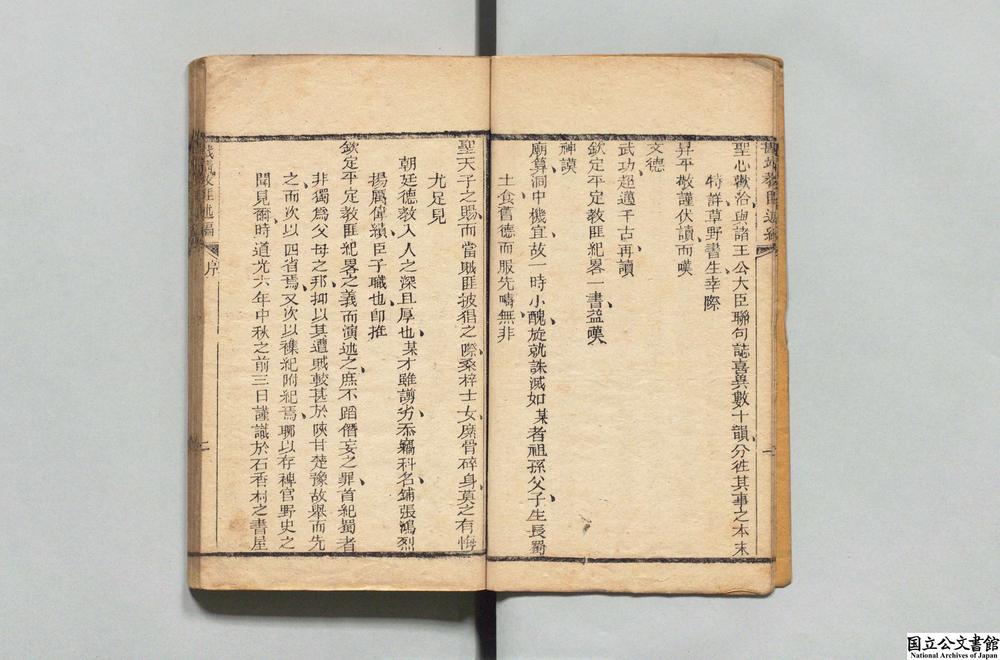 聖心歡洽與諸王公大臣聯句誌喜異數十韻分徃其事之本末
特詳草野書生幸際
昇平敬謹伏讀而嘆
文德
武功超邁千古再讀
欽定平定教匪紀畧一書益嘆
神謨
廟算洞中機宜故一時小醜旋就誅滅如某者祖孫父子生長蜀
土食舊德而服先疇無非
聖天子之賜而當賊匪披猖之際桑梓士女糜骨碎身莫之有悔
尤足見
朝廷德教入人之深且厚也某才雖譾劣忝竊科名鋪張鴻烈
揚厲偉績臣子職也卽推
欽定平定教匪紀畧之義而演述之庶不蹈僭妄之罪首紀蜀者
非獨爲父母之邦抑以其遭賊較甚於陝甘楚豫故舉而先
之而次以四省焉又次以襍紀附紀焉聊以存裨官野史之
聞見爾時道光六年中秋之前三日謹識於石香村之書屋
序
二
国立公文書館
National Archives of Japan